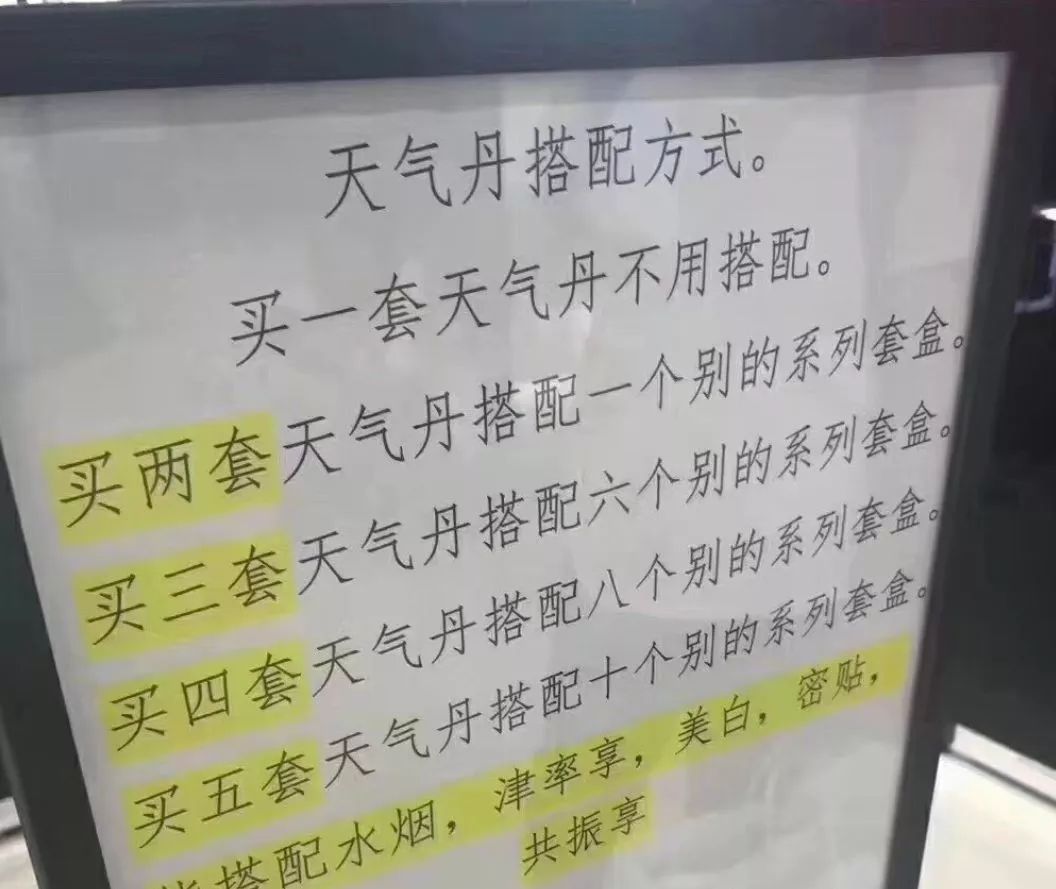 天气丹搭配方式。
买一套天气丹不用搭配。
买两套天气丹搭配一个别的系列套盒。
买三套天气丹搭配六个别的系列套盒。
买四套天气丹搭配八个别的系列套盒。
买五套天气丹搭配十个别的系列套盒。
搭配水烟，津率享，美白，密贴，
共振享